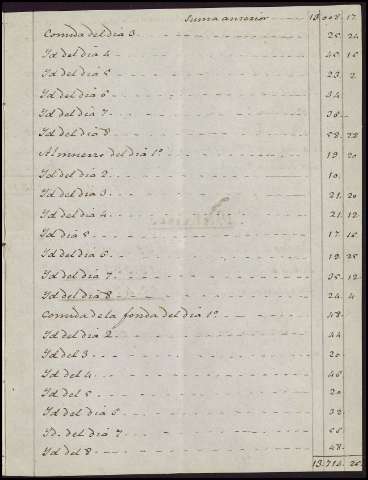 Suma anterior 13.008. 17.
Comida del dia 3 25. 24
Id del dia 4 45. 15
Id del dia 5 23. 2
Id del dia 6 34.
Id del dia 7 38.
Id del dia 8 58. 22
Almuerzo del dia 1º 19. 20
Id del dia 2 10.
Id del dia 3 21. 20
Id del dia 4 21. 12
Id dia 5 17. 15
Id del dia 6 19. 25
Id del dia 7 35. 12
Id del dia 8 24. 4
Comida de la fonda del dia 1º 48.
Id del dia 2 44
Id del 3 20
Id del 4 46
Id del 5 20
Id del dia 6 32
Id. del dia 7 56
Id del 8 48.
13.714. 26